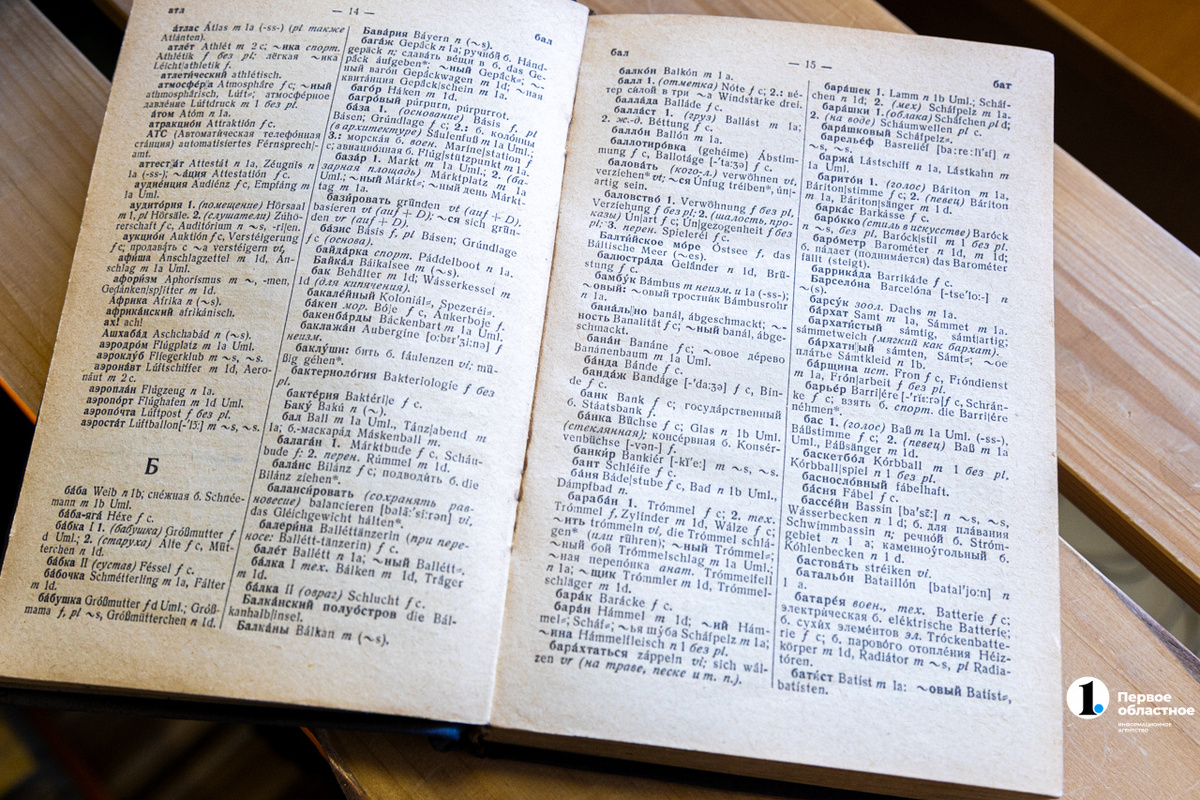 атл
— 14 —
бал
а́тлас Átlas m 1a (-ss-) (pl также
Atlánten).
атле́т Athlét m 2 c; ~ика спорт.
Athlétik f без pl.; лёгкая ~ика
Léicht|athletik f.
атлети́ческий athlétisch.
атмосфе́р|а Atmosphäre f c; ~ный
athmosphärisch. Lúft≠; атмосфе́рное
давле́ние Lúftdruck m 1 без pl.
а́том Atóm n 1a.
атракцио́н Attraktión f c.
АТС (Автомати́ческая телефо́нная
ста́нция) automatisíertes Férnsprech|-
amt.
аттест|а́т Attestát n 1a, Zéugnis n
1a (-ss-); ~а́ция Attestatión f c.
аудие́нция Audiénz f c, Empfáng m
1a Uml.
аудито́рия 1. (помещение) Hörsaal
m 1, pl Hörsäle. 2. (слушатели) Zúhö-
rerschaft f c, Auditórium n ~s, -ri|en.
аукцио́н Auktión f c, Verstéigerung
f c; продава́ть с ~а verstéigern vt.
афи́ша Ánschlagzettel m 1d, Án-
schlag m 1a Uml.
афори́зм Aphorísmus m ~, -men,
Gedánken|splitter m 1d.
А́фрика Áfrika n (~s).
африка́нский afrikánisch.
ах! ach!
Ашхаба́д Aschchabád n (~s).
аэродро́м Flúgplatz m 1a Uml.
аэроклу́б Flíegerklub m ~s, ~s.
аэрона́вт Lúftschiffer m 1d, Aero-
náut m 2 c.
аэропла́н Flúgzeug n 1a.
аэропо́рт Flúghafen m 1d Uml.
аэропо́чта Lúftpost f без pl.
аэроста́т Lúftballon[-'lɔ̃:] m ~s, ~s.
Б
ба́ба Weib n 1b; сне́жная б. Schnée-
mann m 1b Uml.
ба́ба-яга́ Héxe f c.
ба́бка I 1. (бабушка) Gróßmutter f
d Uml.; 2. (старуха) Álte f c, Müt-
terchen n 1d.
ба́бка II (сустав) Féssel f c.
ба́бочка Schmétterling m 1a, Fálter
m 1d.
ба́бушка Gróßmutter f d Uml.; Gróß-
mama f, pl ~s, Gróßmütterchen n 1d.
Бава́рия Báyern n (~s).
бага́ж Gepäck n 1a; ручно́й б. Hánd-
gepäck n; сдава́ть ве́щи в б. das Ge-
päck áufgeben*; ~ный Gepäck≠; ~-
ный ваго́н Gepäckwagen m 1d; ~ная
квита́нция Gepäck|schein m 1a.
баго́р Háken m 1d.
багро́вый púrpurn, púrpurrot.
ба́за 1. (основание) Básis f, pl
Básen; Grúndlage f c; 2.: б. коло́нны
(в архитектуре) Säulenfuß m 1a Uml.;
3.: морска́я б. воен. Maríne|station f
c; авиацио́нная б. Flúg|stützpunkt m 1a.
база́р 1. Markt m 1a Uml.; 2. (ба-
зарная площадь) Márktplatz m 1a
Uml.; ~ный Markt≠; ~ный день Márkt-
tag m 1a.
бази́ровать gründen vt (auf + D).
basíeren vt (auf + D); ~ся sich grün-
den vr (auf + D).
ба́зис Básis f, pl Básen; Grúndlage
f c (основа).
байда́рка спорт. Páddelboot n 1a.
Байка́л Báikalsee m (~s).
бак Behälter m 1d; Wásserkessel m
1d (для кипячения).
бакале́йный Koloniál≠, Spezeréi≠.
ба́кен мор. Bóje f c, Ánkerboje f.
бакенба́рды Báckenbart m 1a Uml.
баклажа́н Aubergine [o:bɛr'ʒi:nə] f
неизм.
баклу́ши: бить б. fáulenzen vi; mü-
ßig géhen*.
бактериоло́гия Bakteriologíe f без
pl.
бакте́рия Baktérije f c.
Баку́ Bakú n (~).
бал Ball m 1a Uml., Tánz|abend m
1a; б.-маскара́д Máskenball m.
балага́н 1. Márktbude f c, Scháu-
bude f; 2. перен. Rúmmel m 1d.
бала́нс Bilánz f c; подводи́ть б. die
Bilánz ziehen*.
баланси́ровать (сохранять рав-
новесие) balancieren [balã:'si:rən] vi,
das Gléichgewicht hálten*.
балери́на Balléttänzerin (при пере-
носе: Ballétt-tänzerin) f c.
бале́т Ballétt n 1a; ~ный Ballétt≠.
ба́лка I мех. Bálken m 1d, Träger
m 1d.
ба́лка II (овраг) Schlucht f c.
Балка́нский полуо́стров die Bál-
kanhalb|insel.
Балка́ны Bálkan m (~s).
бал
— 15 —
бат
балко́н Balkón m 1 a.
балл 1. (отметка) Nóte f c; 2.: ве́-
тер си́лой в три ~а Windstärke drei.
балла́да Balláde f c.
балла́ст 1. (груз) Ballást m 1a;
2. ж.-д. Béttung f c.
балло́н Ballón m 1a.
баллотиро́вка (geheime) Ábstim-
mung f c, Ballotáge [-'ta:ʒə] f c.
балова́ть (кого-л.) verwöhnen vt,
verziehen* vt; ~ся Únfug tréiben*, ún|-
artig sein.
баловство́ 1. Verwöhnung f без pl.
Verziehung f без pl; 2. (шалость, про-
казы) Ún|art f c; Ún|gezogenheit f без
pl; 3. перен. Spieleréi f c.
Балти́йское мо́ре Óstsee f, das
Báltische Meer (~es).
балюстра́да Geländer n 1d, Brü-
stung f c.
бамбу́к Bámbus m неизм. и 1a (-ss-);
~овый: ~овый тростни́к Bámbusrohr
n 1a.
бана́ль|но banál, ábgeschmackt; ~-
ность Banalität f c; ~ный banál, ábge-
schmackt.
бана́н Banáne f c; ~овое де́рево
Banánenbaum m 1a Uml.
ба́нда Bánde f c.
банда́ж Bandáge [-'da:ʒə] f c, Bín-
de f c.
банк Bank f c; госуда́рственный
б. Stáatsbank f.
ба́нка Büchse f c; Glas n 1b Uml.
(стеклянная); консе́рвная б. Konsér-
venbüchse [-vən-] f.
банки́р Bankiér [-kǐ'e:] m ~s, ~s.
бант Schléife f c.
ба́ня Báde|stube f c, Bad n 1b Uml.,
Dámpfbad n.
бараба́н 1. Trómmel f c; 2. тех.
Trómmel f, Zylínder m 1d, Wálze f c;
~ить trómmeln vi, die Trómmel schlá-
gen* (или rühren); ~ный Trómmel≠;
~ный бой Trómmelschlag m 1a Uml.;
~ная перепо́нка анат. Trómmelfell
n 1a; ~щик Trómmler m 1d, Trómmel-
schläger m 1d.
бара́к Barácke f c.
бара́н Hámmel m 1d; ~ий Hám-
mel≠; Scháf≠; ~ья шу́ба Scháfpelz m 1a;
~ина Hámmelfleisch n 1 без pl.
бара́хтаться záppeln vi; sich wäl-
zen vr (на траве, песке и т. п.).
бара́шек 1. Lamm n 1b Uml.; Schäf-
chen n 1d; 2. (мех) Scháfpelz m 1a.
бара́шки 1. (облака) Schäfchen pl d;
2. (на воде) Scháumwellen pl c.
бара́шковый Scháfpelz≠.
барелье́ф Basrelief [ba:re:lǐ'ɛf] n
~s, ~s.
баржа́ Lástschiff n 1a, Lástkahn m
1a Uml.
барито́н 1. (голос) Báriton m 1a,
Báriton|stimme f c; 2. (певец) Báriton
m 1a, Báriton|sänger m 1d.
барка́с Barkásse f c.
баро́кко (стиль в искусстве) Baróck
n ~s, без pl. Baróck|stil m 1 без pl.
баро́метр Barométer n 1d, m 1d;
б. па́дает (поднима́ется) das Barométer
fällt (steigt).
баррика́да Barrikáde f c.
Барсело́на Barcelóna [-tse'lo:-] n
~(s).
барсу́к зоол. Dachs m 1a.
ба́рхат Samt m 1a, Sámmet m 1a.
бархати́стый sámtig, sámt|artig;
sámmetweich (мягкий как бархат).
ба́рхатный sámten, Sámt≠; ~ое
пла́тье Sámtkleid n 1b.
ба́рщина ист. Fron f c, Fróndienst
m 1a, Frón|arbeit f без pl.
барье́р Barri|ére [-'rǐɛ:rə]f c, Schrán-
ke f c; взять б. спорт. die Barri|ére
néhmen*.
бас 1. (голос) Baß m 1a Uml. (-ss-),
Báßstimme f c; 2. (певец) Baß m 1a
Uml., Báßsänger m 1d.
баскетбо́л Kórbball m 1 без pl.
Kórbball|spiel n 1 без pl.
баснословный fábelhaft.
ба́сня Fábel f c.
бассе́йн Bassín [ba'sɛ̃:] n ~s, ~s,
Wásserbecken n 1 d; б. для пла́вания
Schwímmbassin n; речно́й б. Stróm-
gebiet n 1 a; каменноуго́льный б.
Kóhlenbecken n 1 d.
бастова́ть stréiken vi.
батальо́н Bataillón [batal'jo:n] n
1 a.
батаре́я воен., тех. Batterie f c;
электри́ческая б. eléktrische Batterie;
б. сухи́х элеме́нтов эл. Tróckenbatte-
rie f c; б. парово́го отопле́ния Héiz-
körper m 1d, Radiátor m ~s, pl Radia-
tóren.
бати́ст Batíst m 1a: ~овый Batíst≠,
batísten.
1.
Первое
областное
ИНФОРМАЦИОННОЕ
АГЕНТСТВО